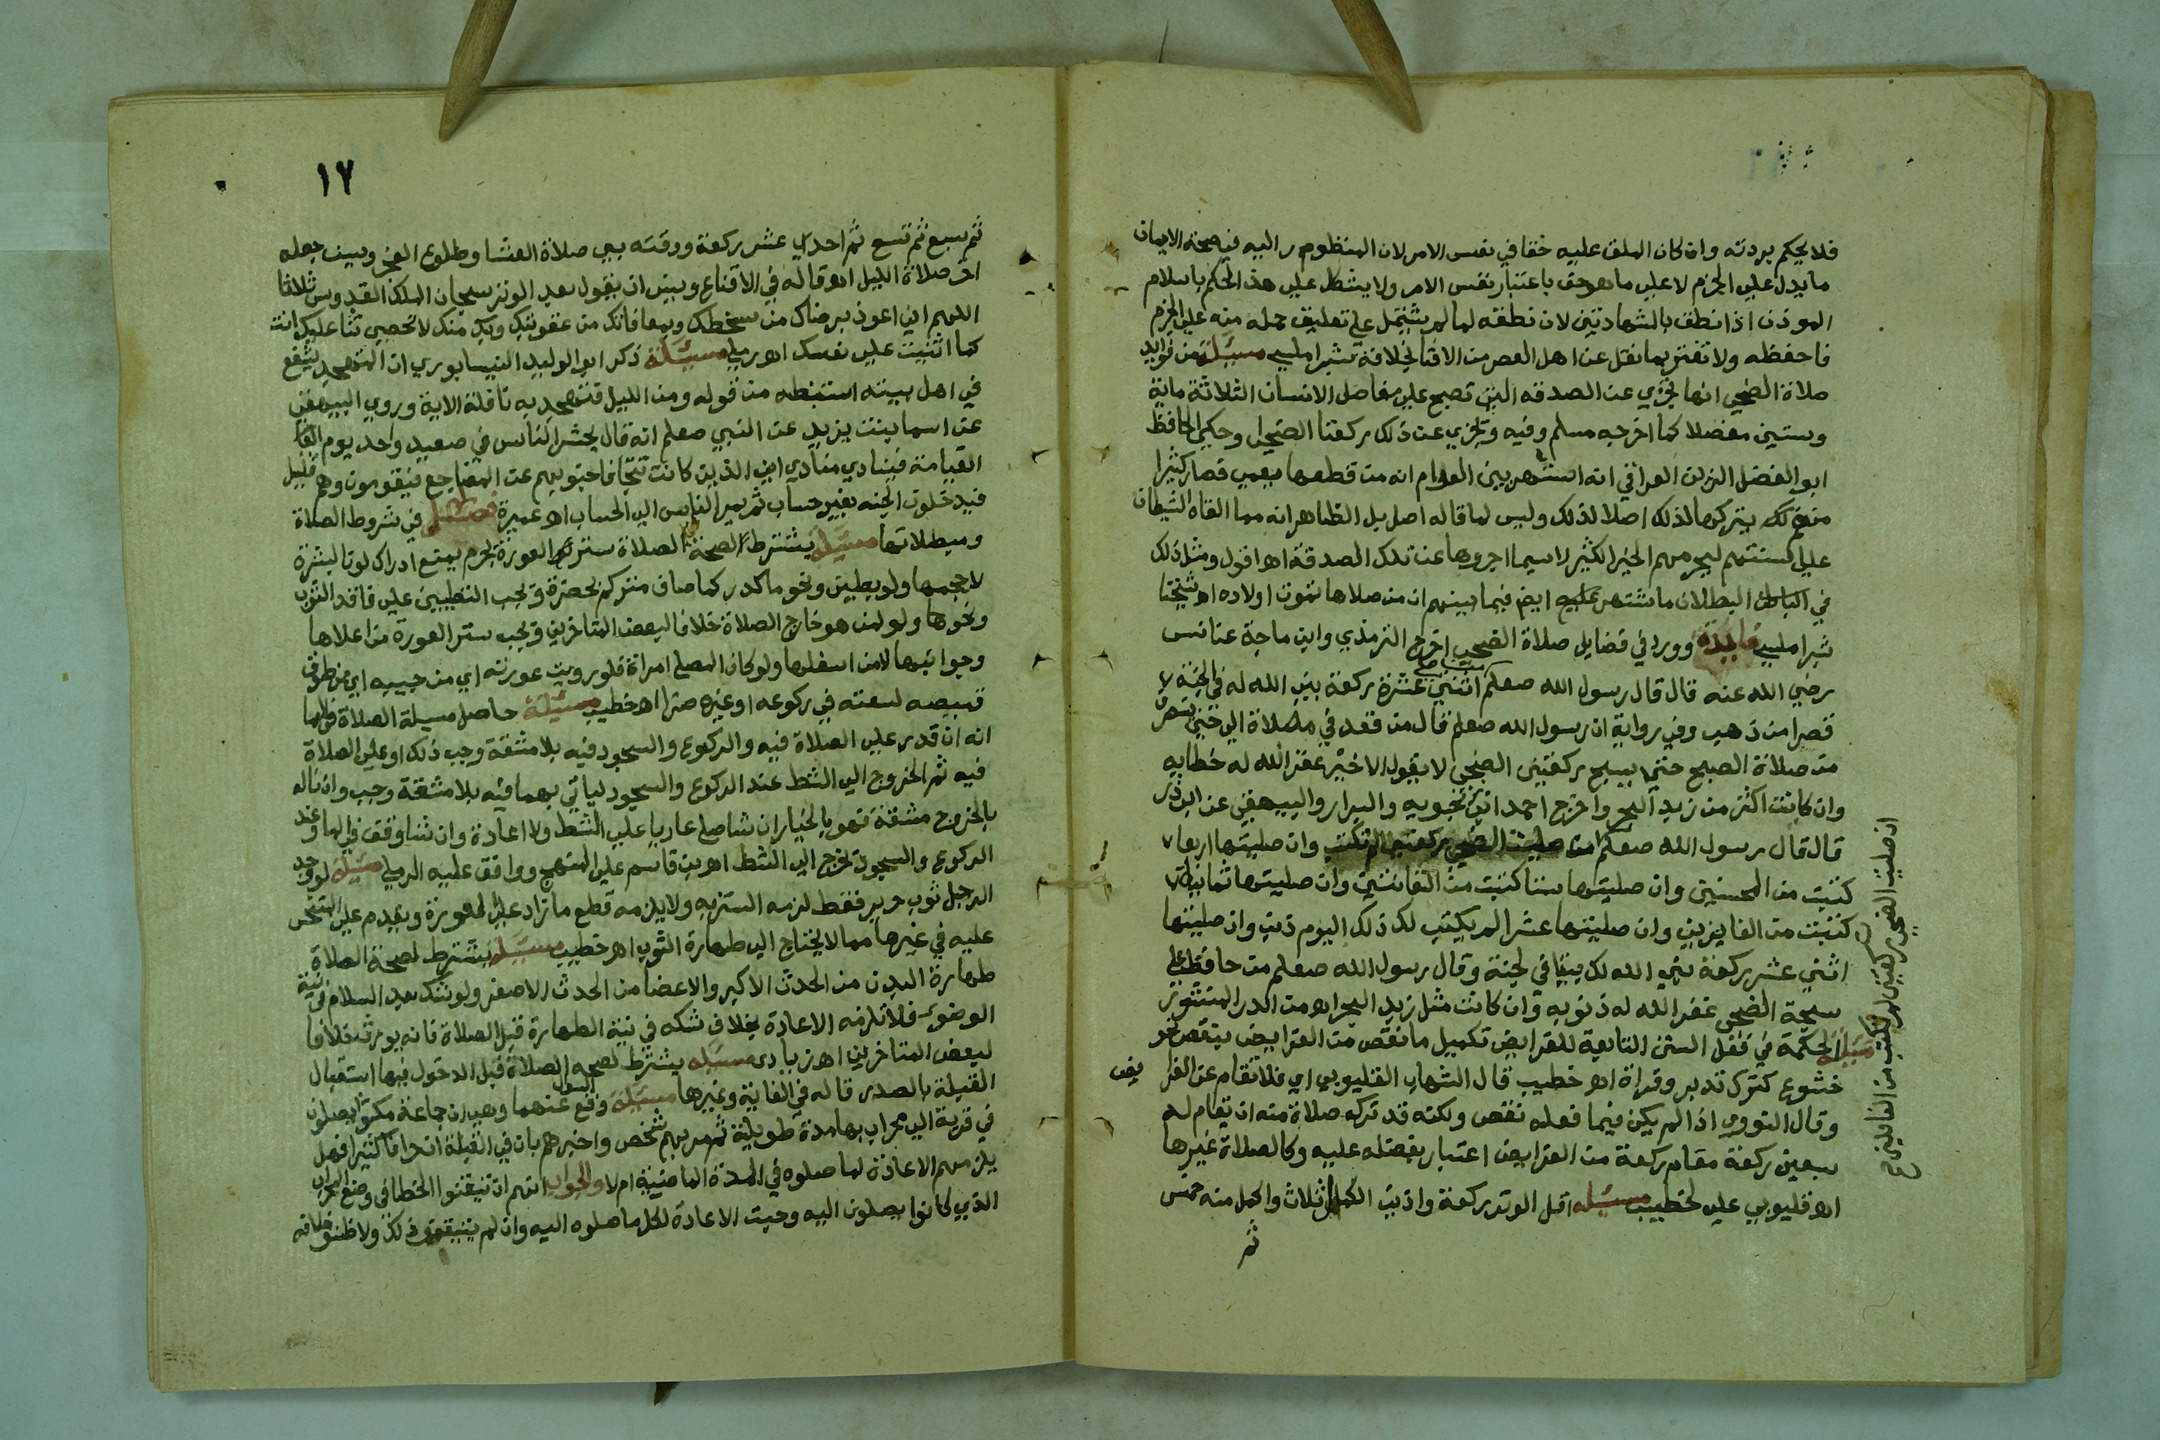 فلا يحكم بردته وان كان الملق عليه حقا في نفس الامر لان المنظوم اليه فيه صحة الايمان
ما يدل على الجزم لا على ما هو حق باعتبار نفس الامر ولا يشكل على هذا الحكم باسلام
الموذن اذا نطق بالشهادتين لان نطقه لما لم يشتمل على تعليق حمله منه على الجزم
فاحفظه ولا تغتر بما نقل عن اهل العصر من الافتا بخلافه شبراملسي مسئلة من فوايد
صلاة الضحى انها تجزي عن الصدقة التي تصبح على مفاصل الانسان الثلاثة ماية
وستين مفصلا كما اخرجه مسلم وفيه وتجزي عن ذلك ركعتا الضحى وحكى الحافظ
ابو الفضل الزين العراقي انه اشتهر بين العوام انه من قطعها يعمى فصار كثيرا
منهم يتركها لذلك اصلا لذلك وليس لما قاله اصل بل الظاهر انه مما القاه الشيطان
على السنتهم ليحرمهم الخير الكثير لاسيما اجزوها عن تلك الصدقة اهـ اقول ومثل ذلك
في البطلان ما اشتهر ايضا فيما بينهم ان من صلاها تموت اولاده اهـ شيخنا
شبراملسي فايدة وورد في فضايل صلاة الضحى اخرج الترمذي وابن ماجة عن انس
رضي الله عنه قال قال رسول الله صعلم اثنتي عشرة ركعة بنى الله له في الجنة
قصرا من ذهب وفي رواية ان رسول الله صعلم قال من قعد في مصلاة
من صلاة الصبح حتى يسبح ركعتين الضحى لا يقول الا خيرا غفر الله له خطايه
وان كانت اكثر من زبد البحر واخرج احمد والبزار والبيهقي عن ابي ذر
قال قال رسول الله صعلم ان صليت الضحى ركعتين لم تكتب وان صليتها اربعا
كتبت من المحسنين وان صليتها ستا كتبت من القانتين وان صليتها ثمانيا
كتبت من الفايزين وان صليتها عشرا لم يكتب لك ذلك اليوم ذنب وان صليتها
اثني عشر ركعة بنى الله لك بيتا في الجنة وقال رسول الله صعلم من حافظ على
سبحة الضحى غفر الله له ذنوبه وان كانت مثل زبد البحر اهـ من الدر المنثور
مسئلة الحكمة في فعل السنن التابعة للفرايض تكميل ما نقص من الفرايض بنقص نحو
خشوع كترك تدبر وقراة اهـ خطيب قال الشهاب القليوبي اي فلا تقام عن الفر
يض
وقال النووي اذا لم يكن فيما فعله نقص ولكنه قد ترك صلاة منه ان تقام له
سبعين ركعة مقام ركعة من الفرايض اعتبار بفضله عليه وكالصلاة غيرها
اهـ قليوبي على خطيب مسئلة اقل الوتر ركعة وادنى الكمال ثلاث واكمل منه خمس
ثم
ان صليت الضحى ركعتين لم تكتب من الغافلين صح
١٧
ثم سبع ثم تسع ثم احدى عشر ركعة ووقته بين صلاة العشا وطلوع الفجر وسن جعله
اخر صلاة الليل اهـ قاله في الاقناع وسن ان يقول بعد الوتر سبحان الملك القدوس ثلاثا
اللهم اني اعوذ برضاك من سخطك وبمعافاتك من عقوبتك وبك منك لا نحصي ثنا عليك انت
كما اثنيت على نفسك اهـ رملي مسئلة ذكر ابو الوليد النيسابوري ان المتهجد يشفع
في اهل بيته استنبطه من قوله ومن الليل فتهجد به نافلة الاية وروي البيهقي
عن اسما بنت يزيد عن النبي صعلم انه قال يحشر الناس في صعيد واحد يوم
القيامة فينادي منادي اين الذين كانت تتجافا جنوبهم عن المضاجع فيقومون وهم قليل
فيدخلون الجنة بغير حساب ثم يمر الناس الى الحساب اهـ عميرة فصل في شروط الصلاة
ومبطلاتها مسئلة يشترط لصحة الصلاة ستر العورة بجرم يمنع ادراك لون البشرة
لا حجمها ولو بطين ونحو ماكدر كما صاف متراكم بخضرة وتجب التطيين على فاقد الثوب
ونحوها ولو لمن هو خارج الصلاة خلافا لبعض المتاخرين ويجب ستر العورة من اعلاها
وجوانبها لا من اسفلها ولو كان المصلي امراة فلو رويت عورته اي من جيبه اي من طوق
قميصه لسعته في ركوعه او غيره ضر اهـ خطيب مسئلة حاصل مسيلة الصلاة في الما
انه ان قدر على الصلاة فيه والركوع والسجود فيه بلا مشقة وجب ذلك او على الصلاة
فيه ثم الخروج الى الشط عند الركوع والسجود لياتي بهما فيه بلا مشقة وجب وان ناله
بالخروج مشقة فهو بالخيار ان شا صلى عاريا على الشط ولا اعادة وان شا وقف في الما وعند
الركوع والسجود يخرج الى الشط اهـ بن قاسم على المنهج ووافق عليه الرملي مسئلة لو وجد
الرجل ثوب حرير فقط لزمه الستر به ولا يلزمه قطع ما زاد على العورة ويقدم على المتنجس
عليه في غيرها مما لا يحتاج الى طهارة الثوب اهـ خطيب مسئلة يشترط لصحة الصلاة
طهارة البدن من الحدث الاكبر والاعضا من الحدث الاصغر ولو شك بعد السلام في نية
الوضوء فلا تلزمه الاعادة بخلاف شكه في نية الطهارة قبل الصلاة فانه يوثر خلافا
لبعض المتاخرين اهـ زيادي مسئلة يشترط لصحة الصلاة قبل الدخول فيها استقبال
القبلة بالصدر قاله في الغاية وغيرها مسئلة وقع السوال عنهما وهي ان جماعة مكثوا يصلون
في قرية الى محراب بها مدة طويلة ثم مر بهم شخص واخبرهم بان في القبلة انحرافا كثيرا فهل
يلزمهم الاعادة لما صلوه في المدة الماضية ام لا والجواب انهم ان تيقنوا الخطا في وضع المحراب
الذي كانوا يصلون اليه وجبت الاعادة لكل ما صلوه اليه وان لم يتيقنوا ذلك ولا ظنوا خلافه